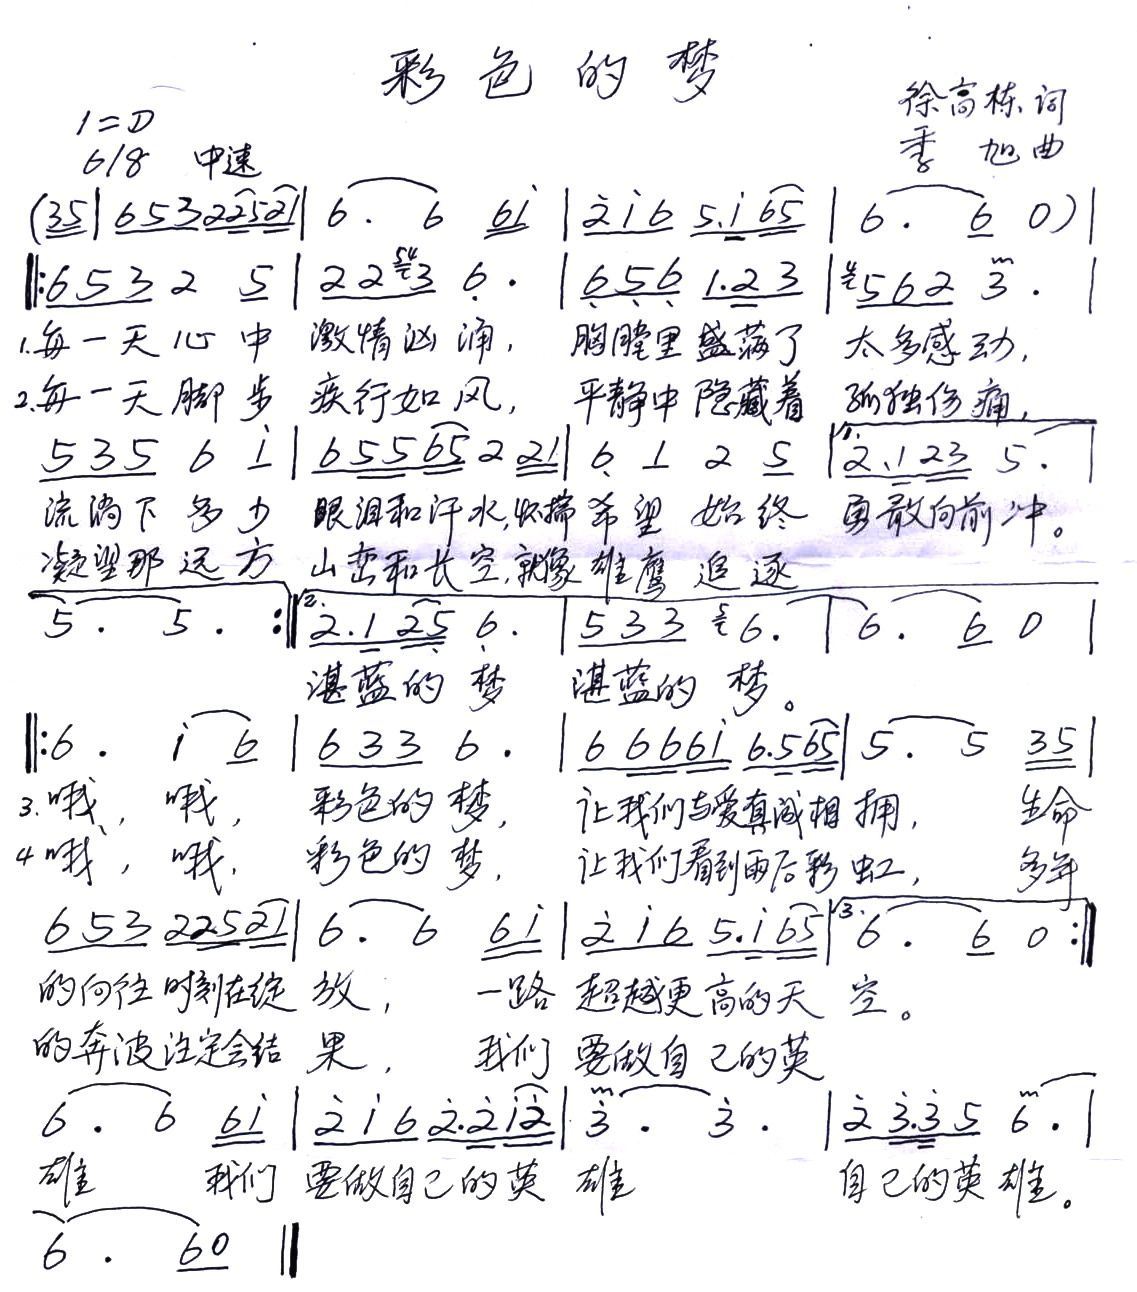 彩色的梦
徐高栋 词
1=D
6/8 中速
季 旭曲
(35| 653 22521 | 6. 6 61 | 216 5.165 | 6. 6 0) |
||:653 2 5 | 22 54 3 6. | 656 1.23 | 562 3. |
1.每一天心中 激情汹涌, 胸膛里盛满了 太多感动,
2.每一天脚步 疾行如风, 平静中隐藏着 孤独伤痛,
535 6 1 | 655 65 2 21 | 6 1 2 5 | 1. 2.123 5. |
流淌下多少 眼泪和汗水,怀揣希望 始终 勇敢向前冲。
凝望那远方 山峦和长空,就像雄鹰 追逐
5. 5. :|| 2. 2.1 25 6. | 533 5 6. | 6. 6 0 |
湛蓝的梦 湛蓝的梦。
||:6. 1 6 | 633 6. | 6 6661 6.565 | 5. 5 35 |
3.哦, 哦, 彩色的梦, 让我们与爱真诚相拥, 生命
4哦, 哦, 彩色的梦, 让我们看到雨后彩虹, 多年
653 22521 | 6. 6 61 | 216 5.165 | 3. 6. 6 0 :||
的向往时刻在绽 放, 一路 超越更高的天 空。
的奔波注定会结 果, 我们 要做自己的英
6. 6 61 | 216 2.212 | 3. 3. | 2 3.3 5 6. |
雄 我们 要做自己的英 雄 自己的英雄。
6. 60 ||